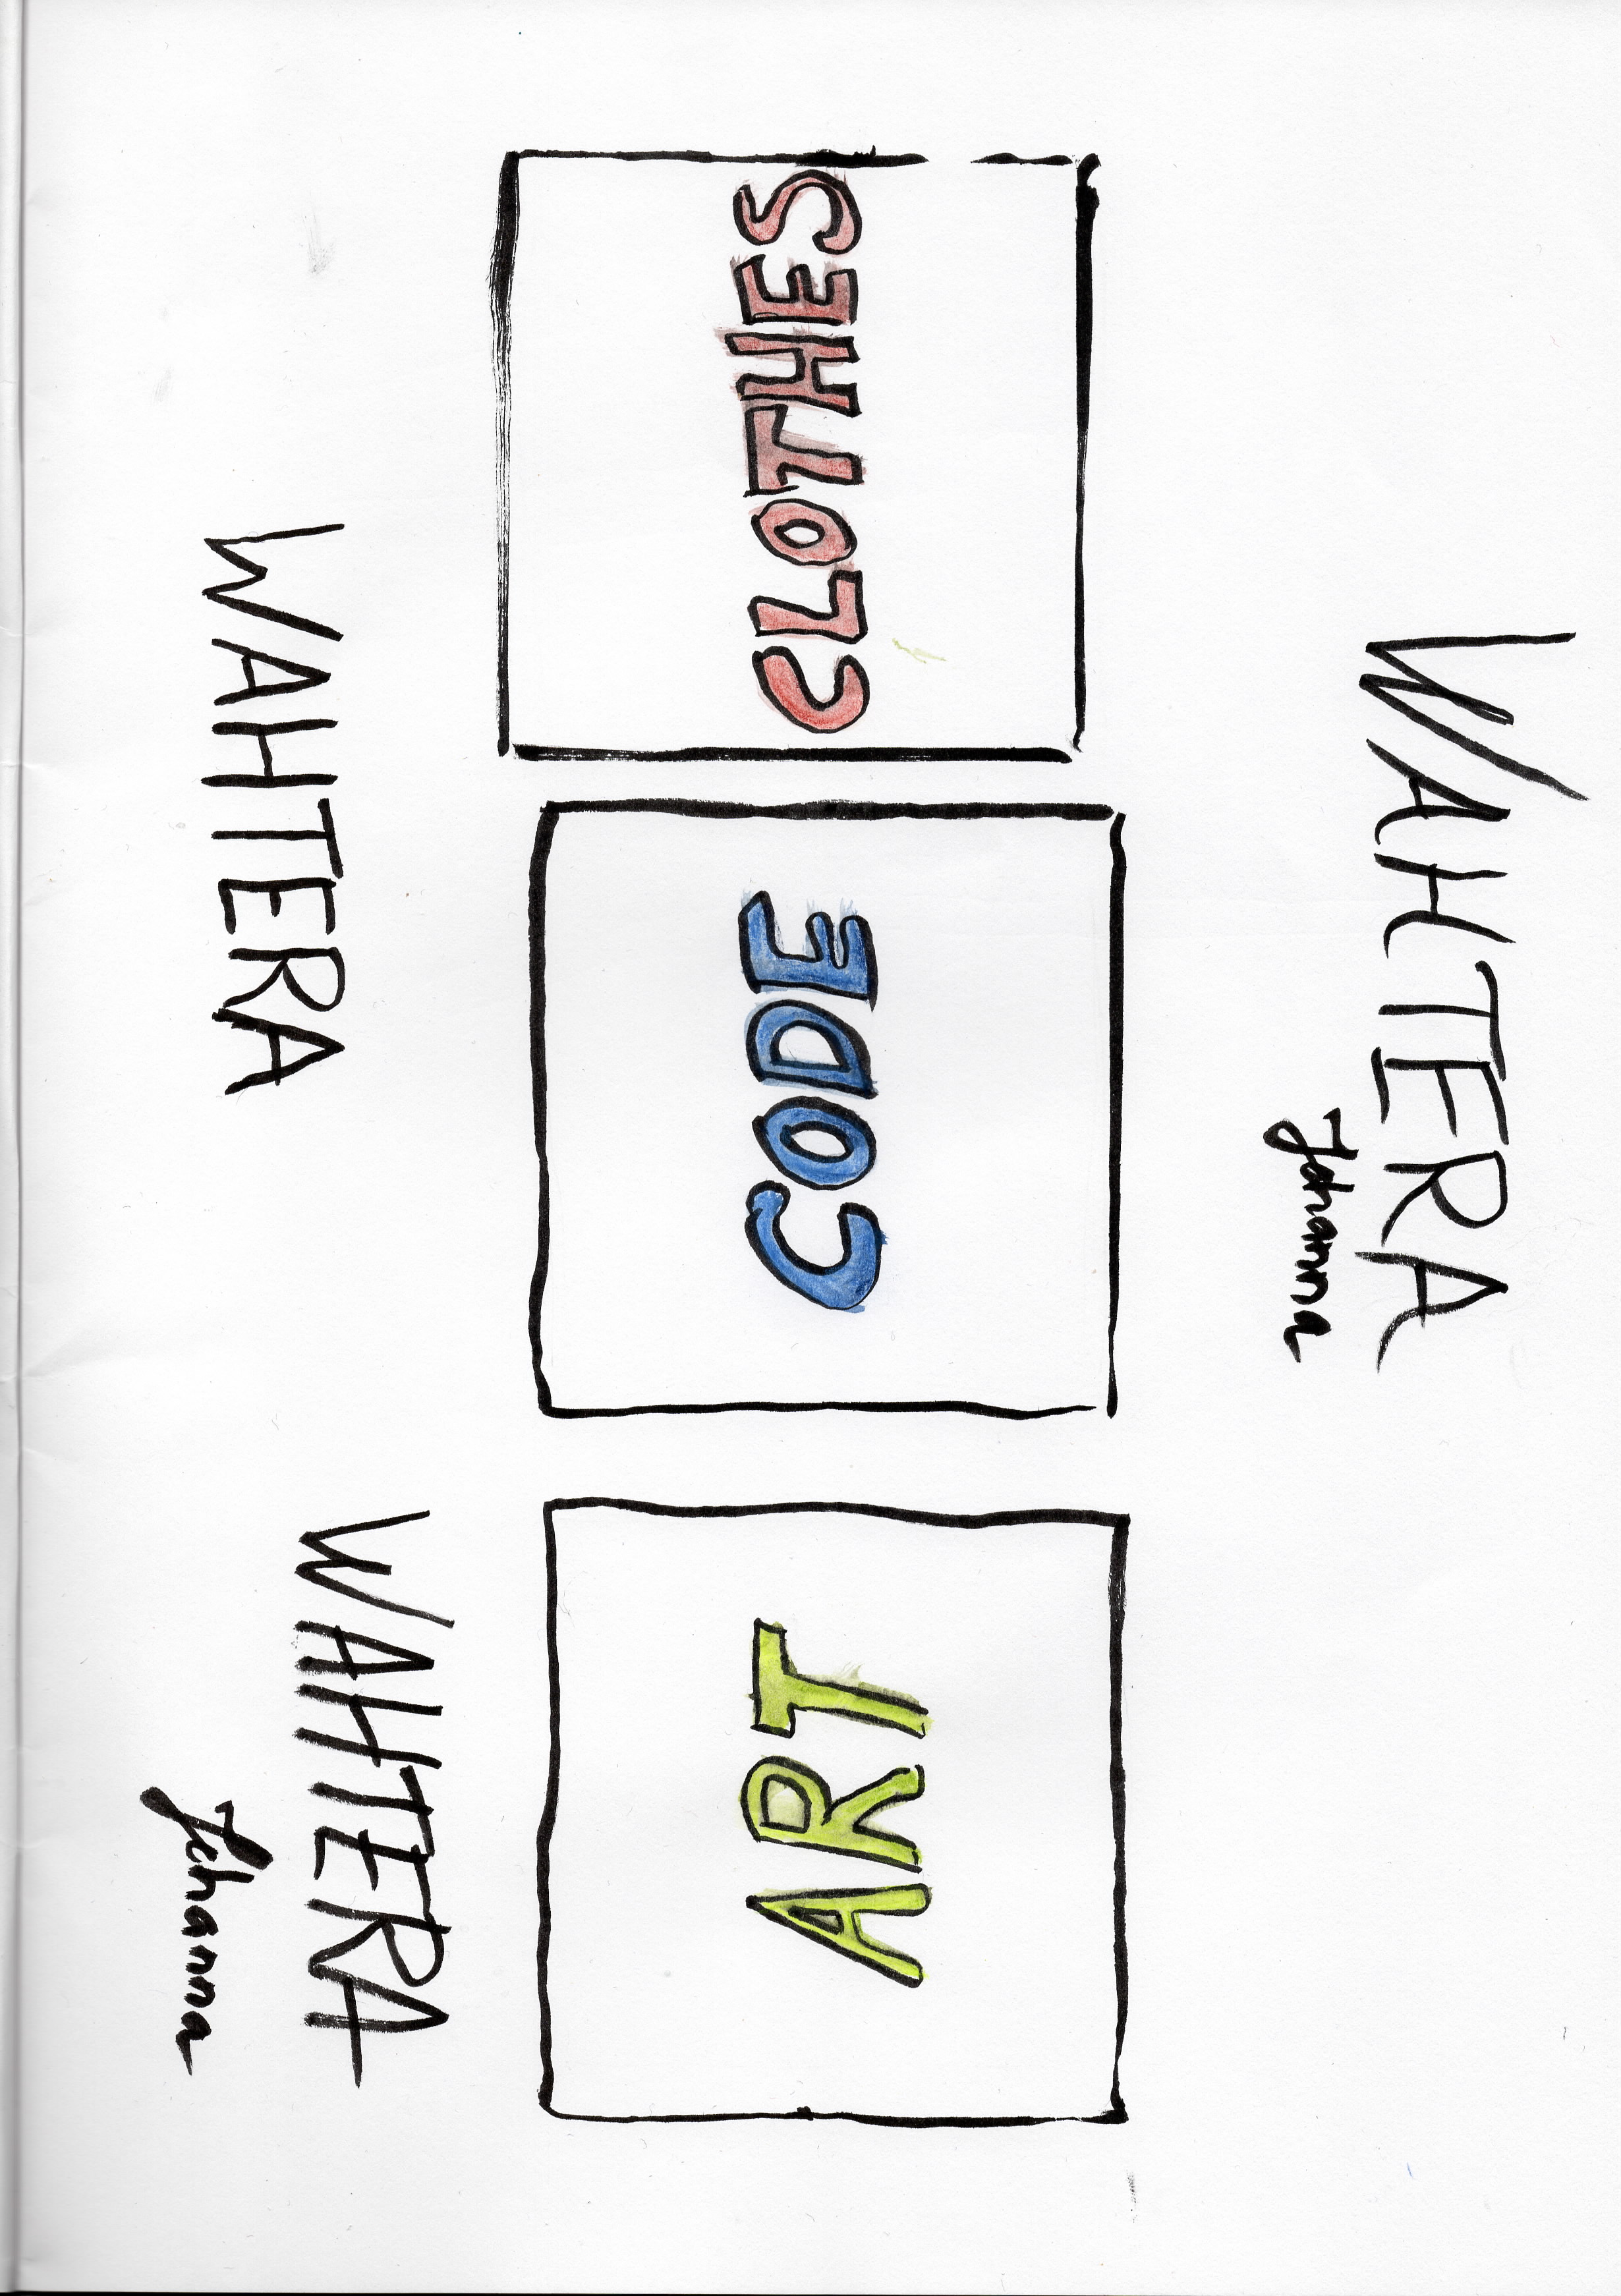 WAHTERA
Johanna
CLOTHES
CODE
ART
WAHTERA
WAHTERA
Johanna